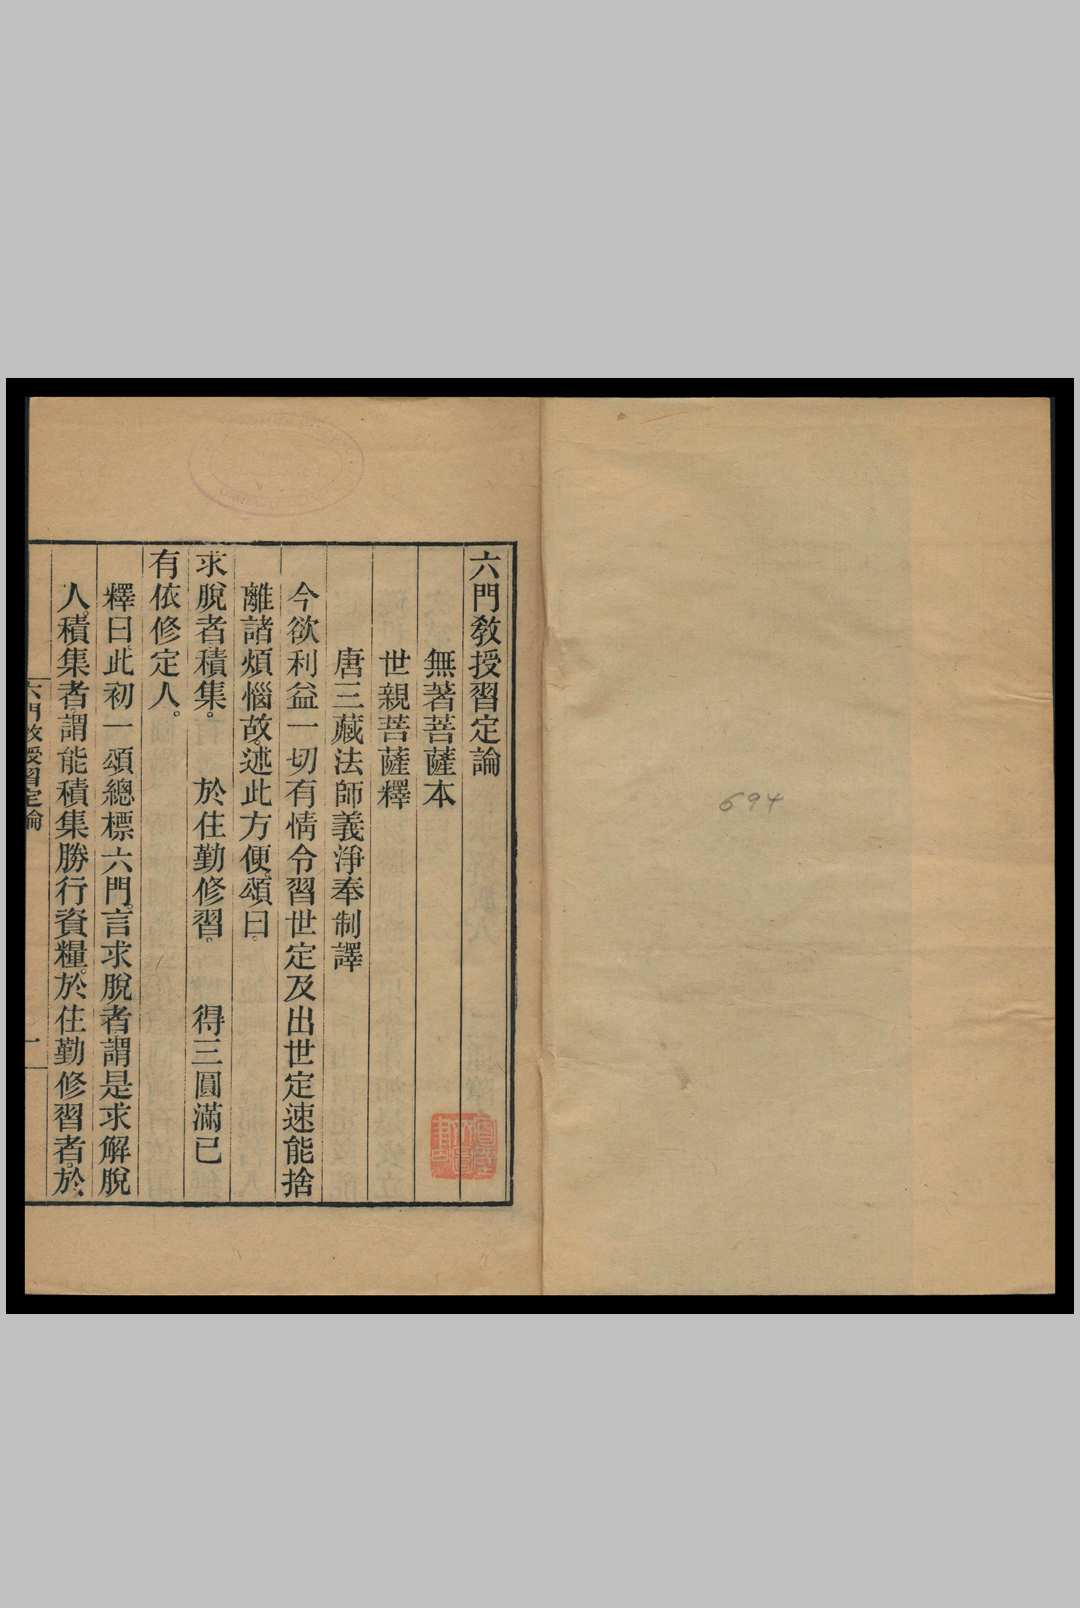 六門教授習定論
無著菩薩本
世親菩薩釋
唐三藏法師義淨奉制譯
今欲利益一切有情令習世定及出世定速能捨
離諸煩惱故述此方便頌曰。
求脫者積集。　於住勤修習。　得三圓滿已
有依修定人。
釋曰此初一頌總標六門。言求脫者謂是求解脫
人。積集者。謂能積集勝行資糧。於住勤修習者。於
六門教授習定論
一
694